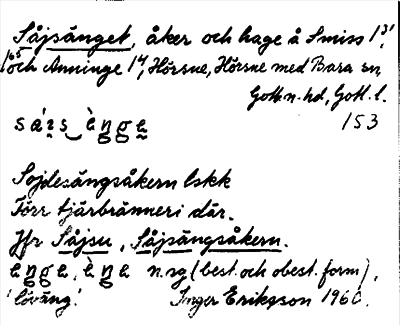 Såjsänget, åker och hage å Smiss 1³¹,
1⁶⁵ och Anninge 1⁴, Hörsne, Hörsne med Bara sn,
Gotl. n. hd, Gotl. l.
153
Sojdesängsåkern lskk
Förr tjärbränneri där.
Jfr Såjsu, Såjsängsåkern.
n. sg (best. och obest. form),
'löväng.' Inger Eriksson 1960.